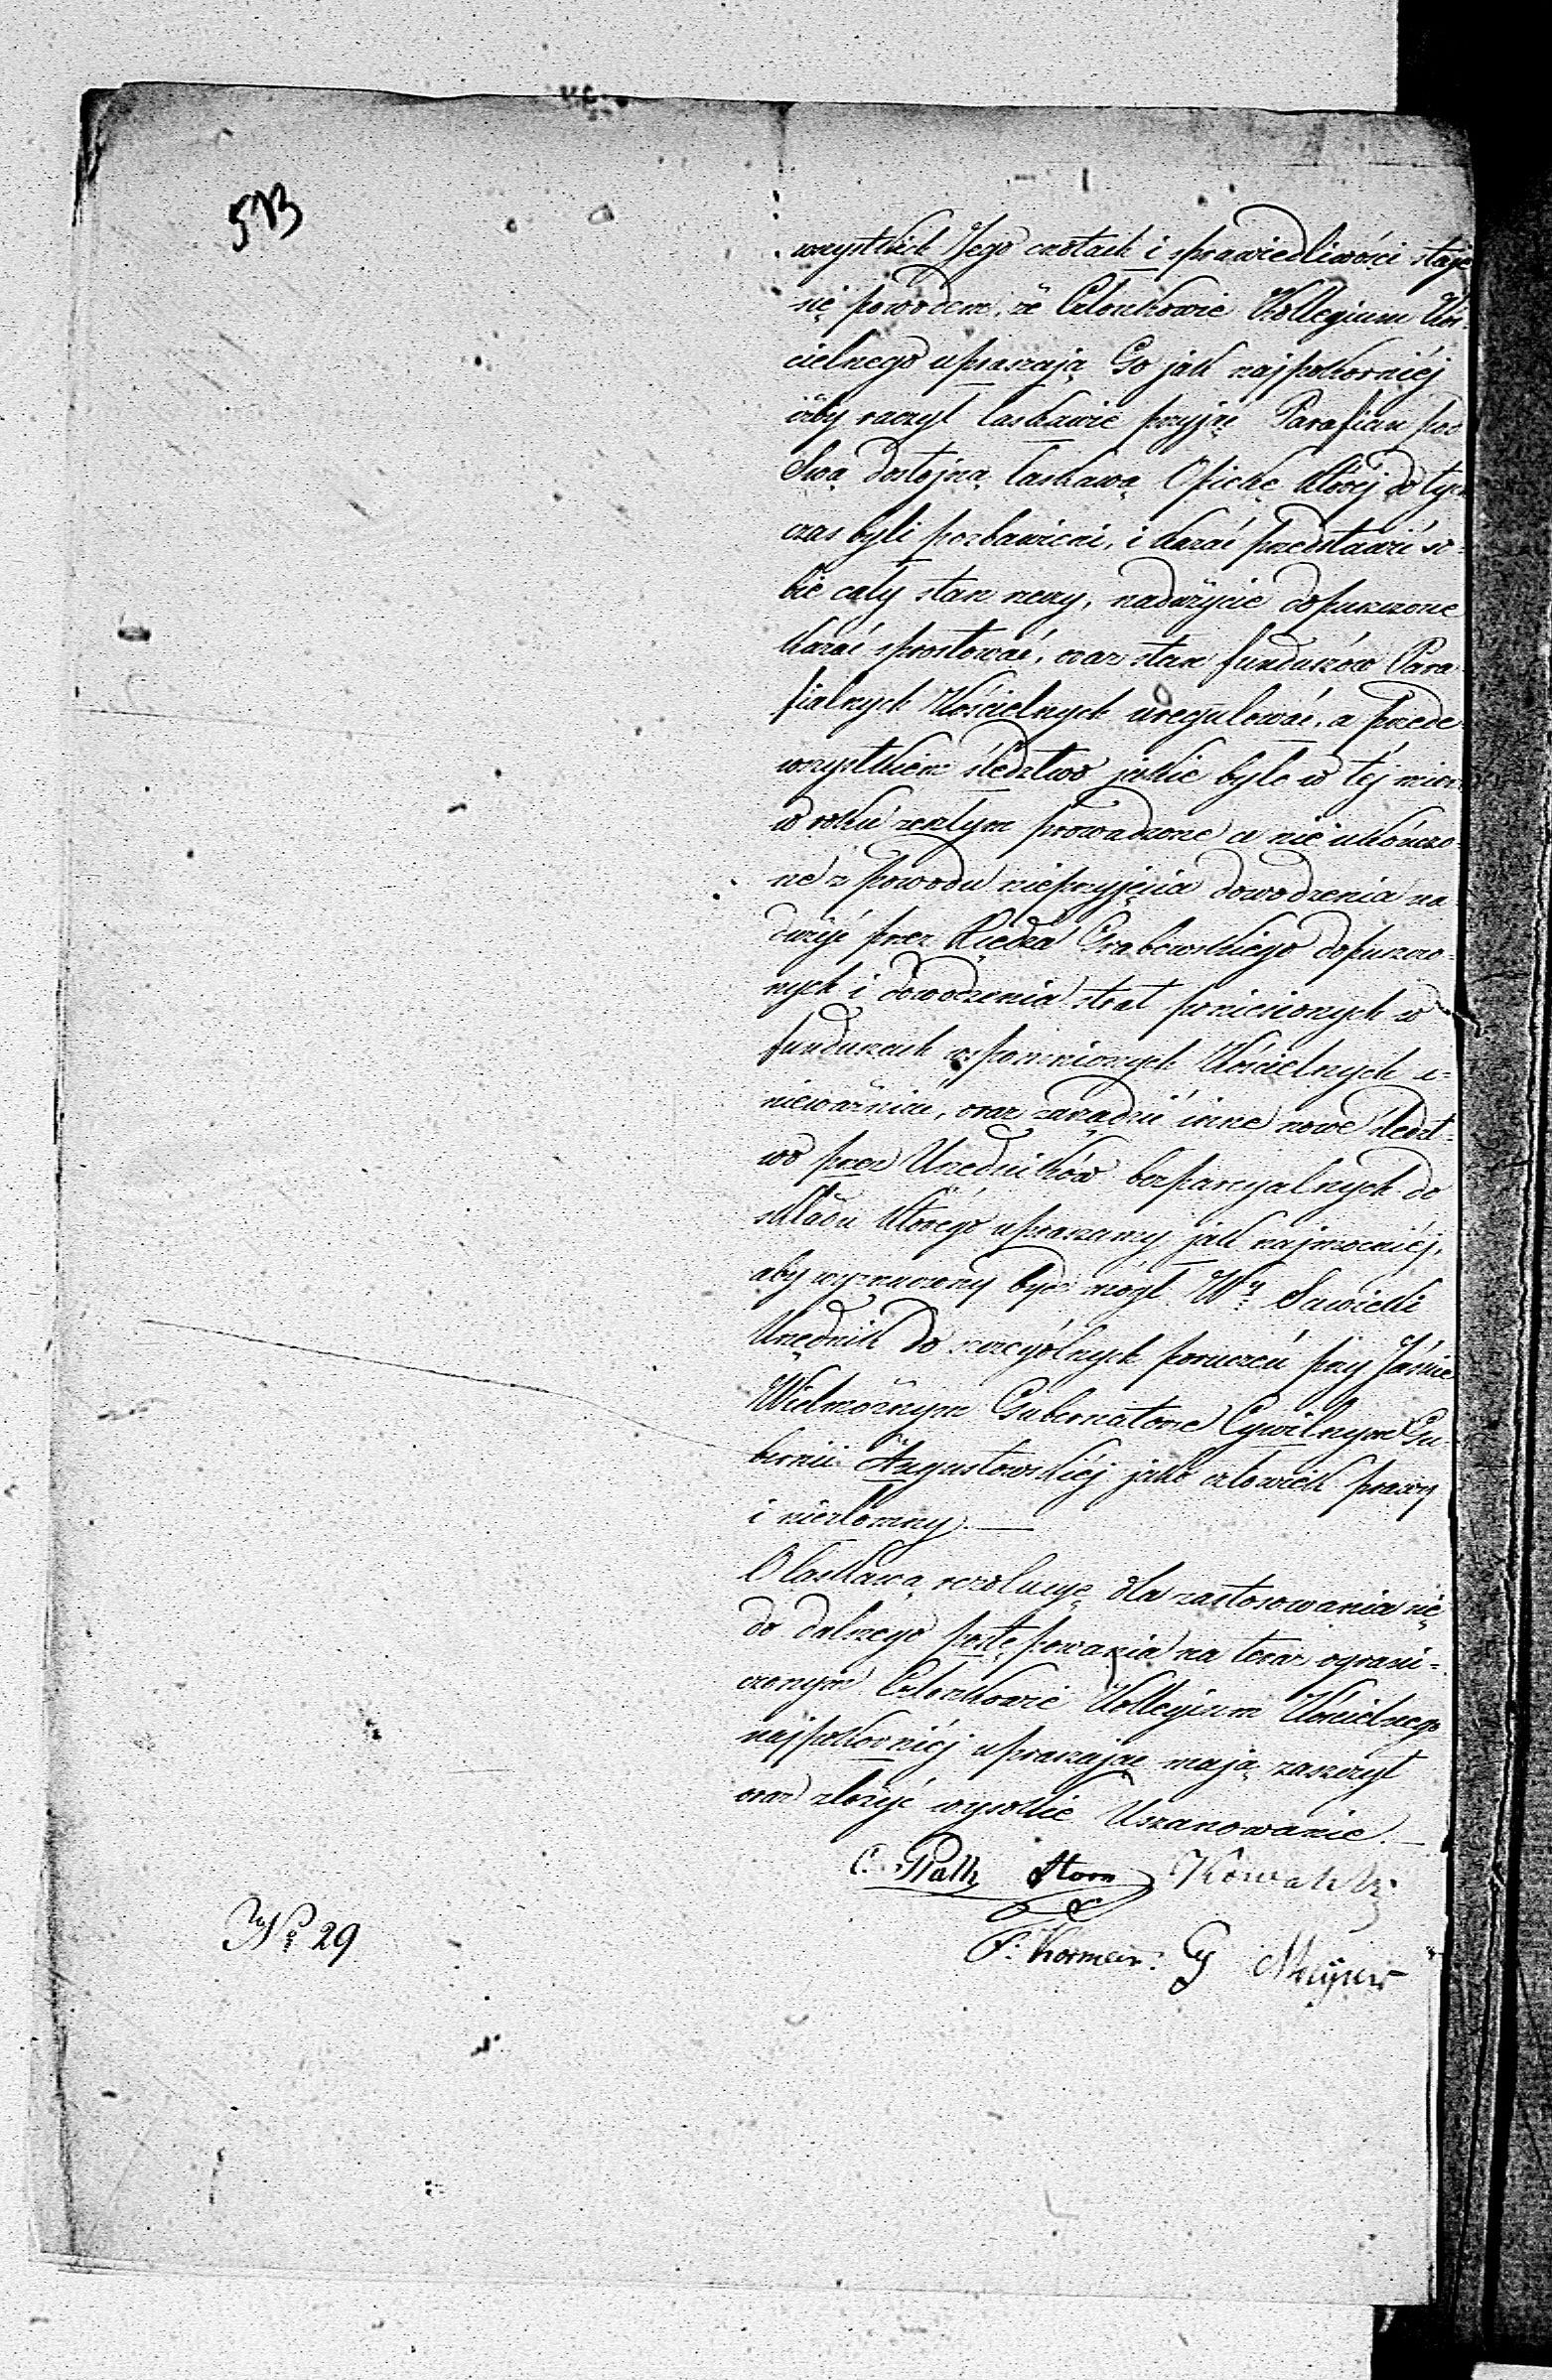 513
wszystkich Jego cnotach i sprawiedliwości staje
się powodem, że Członkowie Kollegium Koś-
cielnego upraszają Go jak najpokorniéj
iżby raczył łaskawie przyjąć Parafian pod
Swą dostojną łaskawą Opiekę któréj do tych
czas byli pozbawieni, i kazać przedstawić so-
bie cały stan rzeczy, nadużycie dopuszczone
kazać sprostować, oraz stan funduszów Para
fialnych Kościelnych uregulować, a przede
wszystkiem śledztwo jakie było w téj mierze
w roku zeszłym prowadzone a nie ukończo-
ne z powodu nieprzyjęcia dowodzenia na
dużyć przez Księdza Grabowskiego dopuszczo-
nych i dowodzenia strat poniesionych w
funduszach wspomnionych Kościelnych u-
nieważnić, oraz zarządzić inne nowe śledzt-
wo przez Urzędników bezparcyalnych do
składu którego upraszamy jak najmocniéj,
aby wyznaczony być mógł Wy Sawicki
Urzędnik do szczególnych poruczeń przy Jaśnie
Wielmożnym Gubernatorze Cywilnym Gu-
bernii Augustowskiéj jako człowiek prawy
i niezłomny.—
O łaskawą rezolucyę dla zastosowania się
do dalszego postępowania na teraz ograni-
czonym Członkowie Kollegium Kościelnego
najpokorniéj upraszając mają zaszczyt
oraz złożyć wysokie Uszanowanie.—
C. Storn Kowalski
F. G Meyer
No 29